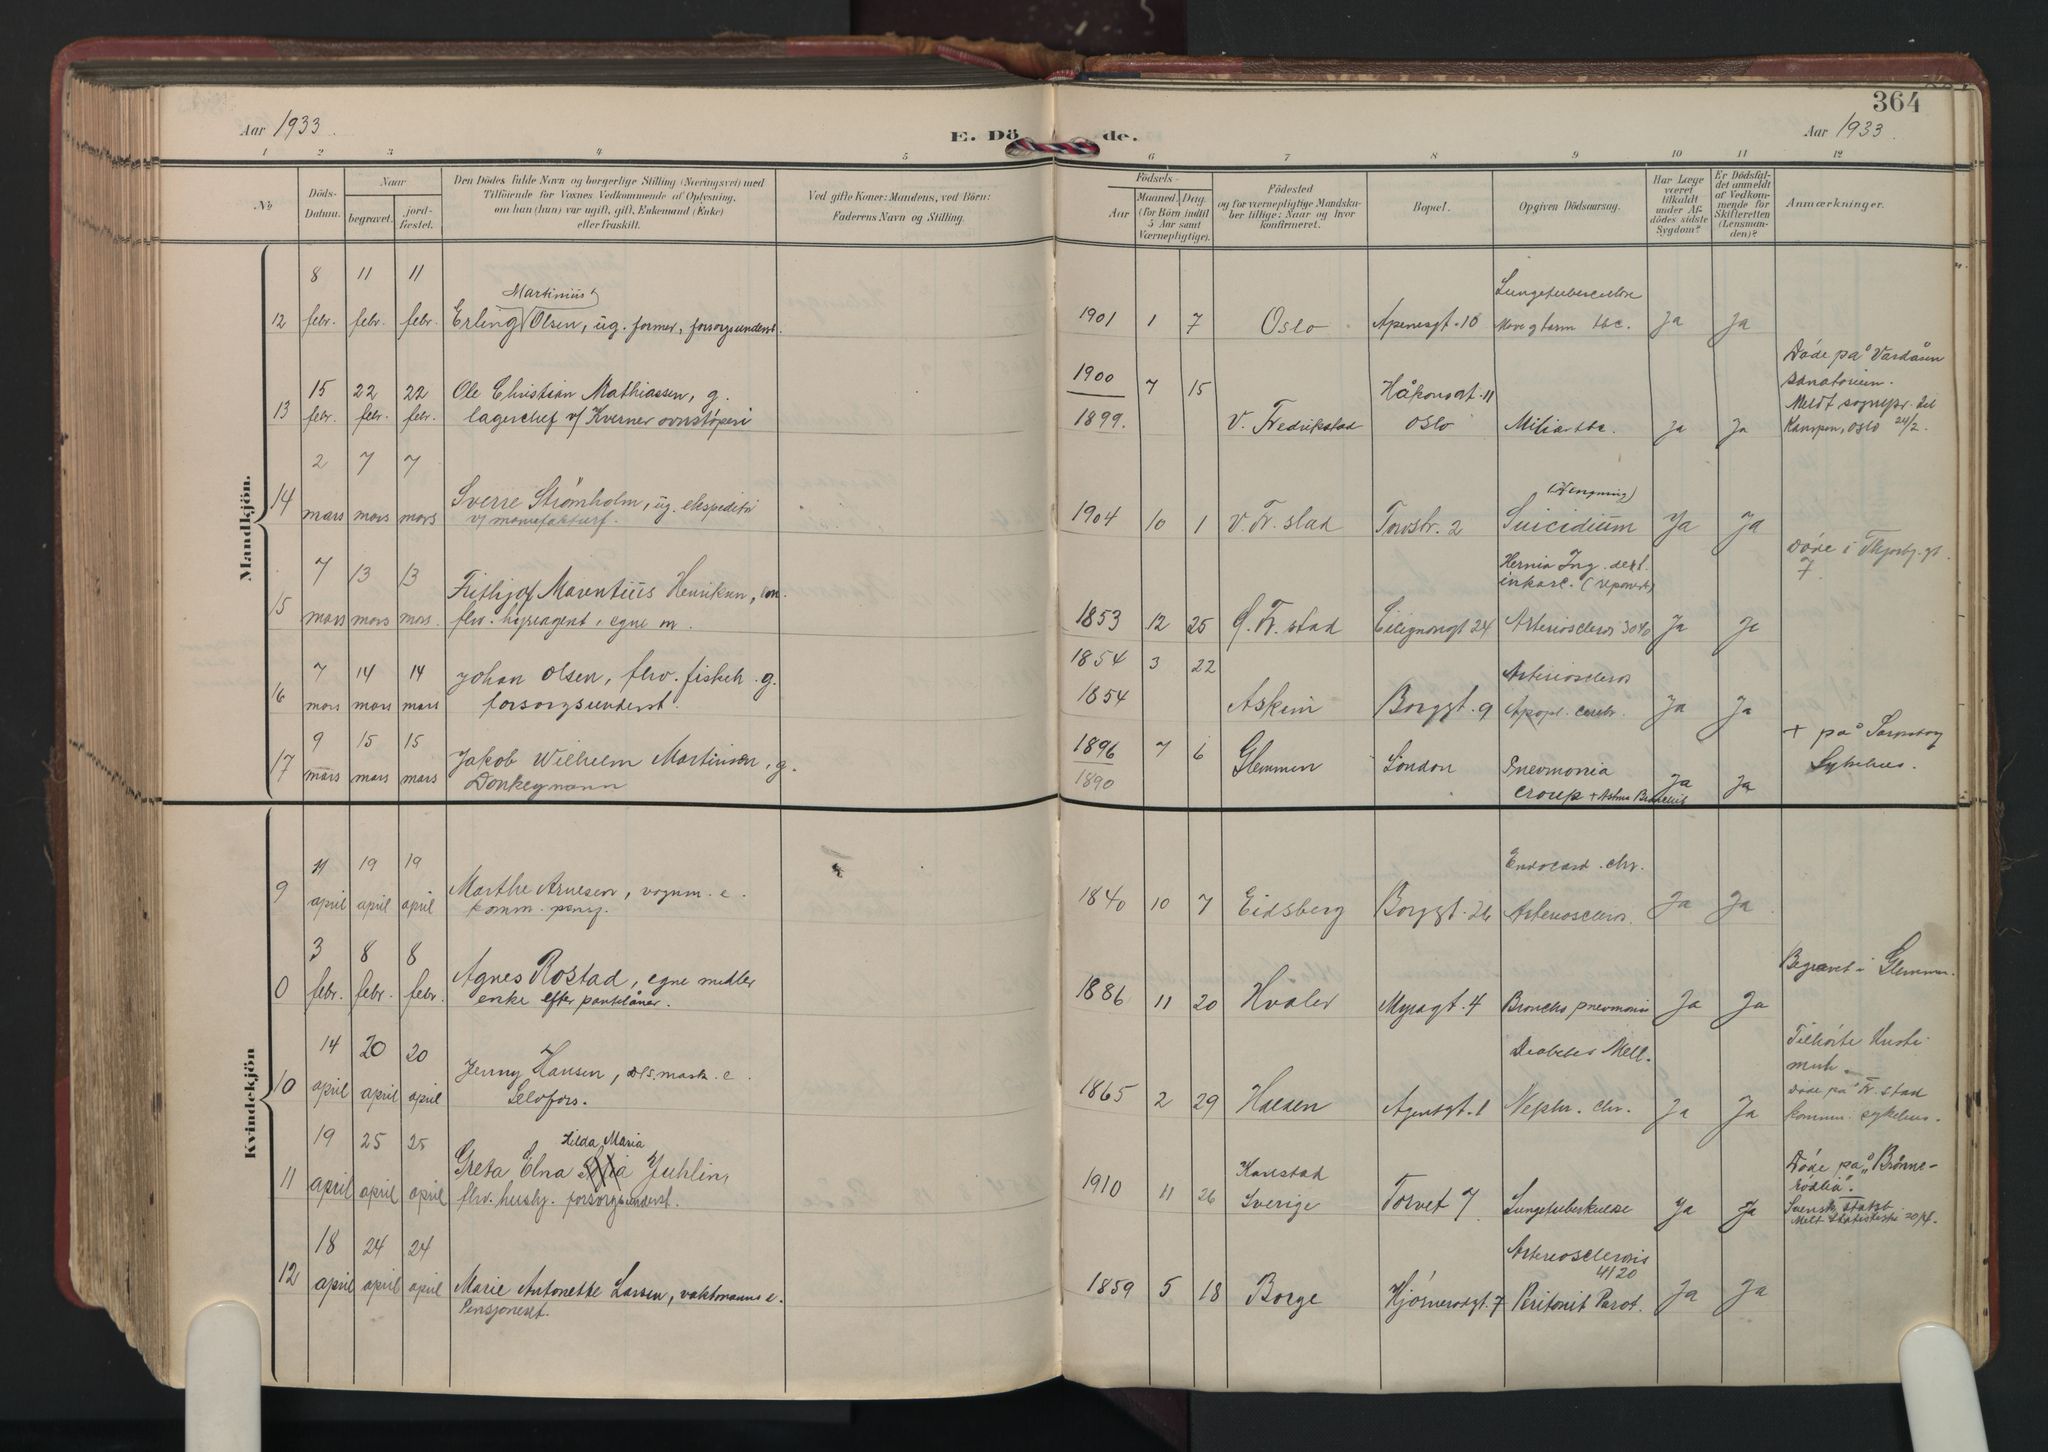 364
Aar 1933.
E. Dö de.
Aar 1933.
1 2 3 4 5 6 7 8 9 10 11 12
No
Döds-Datum.
Naar
begravet.
jord-fæstet.
Den Dödes fulde Navn og borgerlige Stilling (Næringsvei) med
Tilföiende for Voxnes Vedkommende af Oplysning,
om han (hun) var ugift, gift, Enkemand (Enke)
eller fraskilt.
Ved gifte Koner: Mandens, ved Börn:
Faderens Navn og Stilling.
Födsels-
Aar
Maaned. Dag.
(for Börn indtil
5 Aar samt
Værnepligtige).
Födested
og for værnepligtige Mandska-
ber tillige: Naar og hvor
konfirmeret.
Bopæl.
Opgiven Dödsaarsag.
Har Læge
været
tilkaldt
under Af-
dödes sidste
Sygdom?
Er Dödsfal-
det anmeldt
af Vedkom-
mende for
Skifteretten
(Lensman-
den)?
Anmærkninger.
Mandkjön.
8 11 11 Martinius Lungetuberculose
12 febr. febr. febr. Erling Olsen, ug. former, forsorgsunderst. 1901 1 7 Oslo Apenesgt. 10 Mave g tarm tbc. Ja Ja
Døde på Vardåsen
sanatorium.
15 22 22 Ole Christian Mathiassen, g. 1900 7 15 Håkonsgt. 11
Meldt sognepr. til
13 febr. febr. febr. lagerchef v/ Kverner ovnstøperi 1899. V. Fredrikstad Oslo Miliar tbc. Ja Ja Kampen, Oslo 24/2.
2 7 7 (Hengning)
14 mars mars mars Sverre Strømholm, ug. ekspeditør 1904 10 1 V. Fr. stad Torvstr. 2 Suicidium Ja Ja
v/ manufakturf.
Døde i
7
7 13 13 Fritjof Marentius Henriksen, Hernia Ing. dext.
inkarc.
15 mars mars mars. flrv. hyreagent, egne m. 1853 12 25 Ø. Fr. stad 24 Arterioscleros Ja Ja
7 14 14 Johan Olsen, flrv. fiskeh. g. 1854 3 22 Arterioscleros
16 mars mars mars forsorgsunderst. 1854 Askim Borggt. 9 Apopl. cerebr. Ja Ja
9 15 15 Jakob Wilhelm Martinsen, g. 1896 7 6 Glemmen London Pnevmonia + på Sarpsborg
17 mars mars mars Donkeymann 1890 croup. + Astma Bronchit Ja Ja Sykehus.
Kvindekjön
11 19 19 Endocard. chr.
9 april april april Marthe Arnesen, vognm. e. 1840 10 7 Eidsberg Borggt. 26 Arterioscleros. Ja Ja
komm. pensj.
3 8 8 Agnes Rostad, egne midler Begravet i Glemmen.
0 febr. febr. febr. enke efter pantelåner. 1886 11 20 Hvaler Myragt. 4 Broncho pnevmoni Ja Ja
14 20 20 Jenny Hansen, Diabetes Mell. Tilhørte
10 april april april 1865 2 29 Halden Agentgt. 1 Nephr. chr. Ja Ja
Døde på Fr. stad
kommun. sykehus.
19 25 25 Lilda Maria
11 april april april Greta Elna Juhlin, 1910 11 26 Karlstad
Sverige Torvet 7 Lungetuberkulose Ja Ja
flrv. hushj. forsorgsunderst.
Døde på "Brønne-
rødlia".
Svensk statsb.
Melt Statistiske
18 24 24 Arteriosclerosis
4120
12 april april april Marie Antonette Larsen, vaktmanns e. 1859 5 18 Borge 7 Peritonit Ja Ja
Pensjonist.